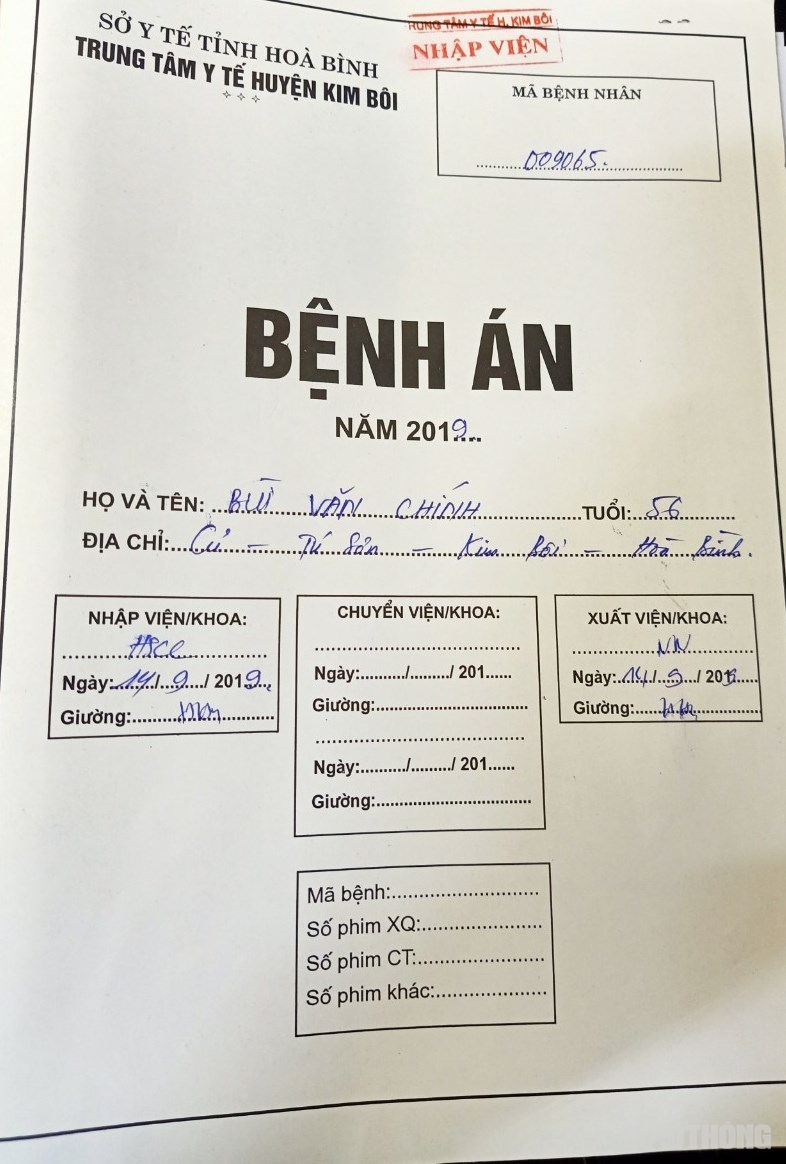 SỞ Y TẾ TỈNH HOÀ BÌNH
TRUNG TÂM Y TẾ HUYỆN KIM BÔI
TRUNG TÂM Y TẾ H. KIM BÔI
NHẬP VIỆN
MÃ BỆNH NHÂN
009065.
BỆNH ÁN
NĂM 2019
HỌ VÀ TÊN: BÙI VĂN CHÍNH TUỔI: 56
ĐỊA CHỈ: Củ - Tú Sơn - Kim Bôi - Hoà Bình.
NHẬP VIỆN/KHOA:
HSCC
Ngày: 14/9/2019
Giường:
CHUYỂN VIỆN/KHOA:
Ngày:........./........./ 201......
Giường:
Ngày:........./........./ 201......
Giường:
XUẤT VIỆN/KHOA:
Ngày: 14/9/2019
Giường:
Mã bệnh:
Số phim XQ:
Số phim CT:
Số phim khác:
THÔNG